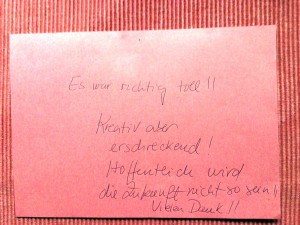 Es war richtig toll!!
Kreativ aber
erschreckend!
Hoffentlich wird
die Zukunft nicht so sein!!
Vielen Dank!!